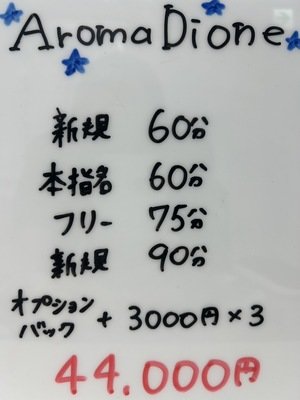 Aroma Dione
新規 60分
本指名 60分
フリー 75分
新規 90分
オプション
バック + 3000円×3
44.000円